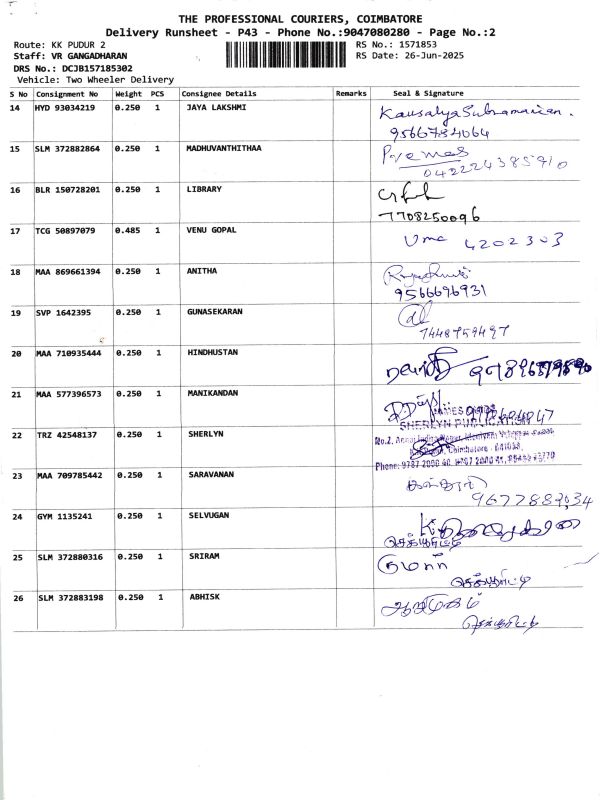 THE PROFESSIONAL COURIERS, COIMBATORE
Delivery Runsheet - P43 - Phone No.:9047080280 - Page No.:2
Route: KK PUDUR 2
RS No.: 1571853
Staff: VR GANGADHARAN
RS Date: 26-Jun-2025
DRS No.: DCJB157185302
Vehicle: Two Wheeler Delivery
S No Consignment No Weight PCS Consignee Details Remarks Seal & Signature
14 HYD 93034219 0.250 1 JAYA LAKSHMI Kausalya Subramanian.
9566784064
15 SLM 372882864 0.250 1 MADHUVANTHITHAA
0422224385910
16 BLR 150728201 0.250 1 LIBRARY
7708250096
17 TCG 50897079 0.485 1 VENU GOPAL Uma 4202303
18 MAA 869661394 0.250 1 ANITHA
9566696931
19 SVP 1642395 0.250 1 GUNASEKARAN
7448959497
20 MAA 710935444 0.250 1 HINDHUSTAN
21 MAA 577396573 0.250 1 MANIKANDAN
22 TRZ 42548137 0.250 1 SHERLYN
SHERLYN PUBLICATION
23 MAA 709785442 0.250 1 SARAVANAN
24 GYM 1135241 0.250 1 SELVUGAN
25 SLM 372880316 0.250 1 SRIRAM குமார்
26 SLM 372883198 0.250 1 ABHISK